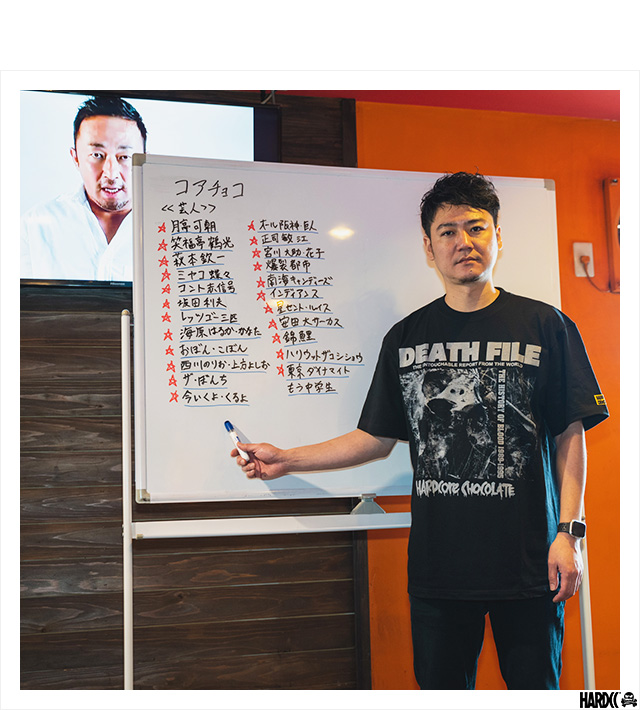 コアチョコ
<<芸人>>
☆月亭可朝
☆笑福亭鶴光
☆萩本欽一
☆ミヤコ蝶々
☆コント赤信号
☆坂田利夫
☆レツゴー三匹
☆海原はるか・かなた
☆おぼん・こぼん
☆西川のりお・上方よしお
☆ザ・ぼんち
☆今いくよ・くるよ
☆オール阪神・巨人
☆正司敏江
☆宮川大助・花子
☆爆裂都市
☆南海キャンディーズ
☆インディアンス
☆星セント・ルイス
☆安田大サーカス
☆錦鯉
☆ハリウッドザコシショウ
☆東京ダイナマイト
もう中学生
DEATH FILE
THE UNTOUCHABLE REPORT FROM THE WORLD
THE HISTORY OF BLOOD 1989-1995
HARDCORE CHOCOLATE
HARDCC